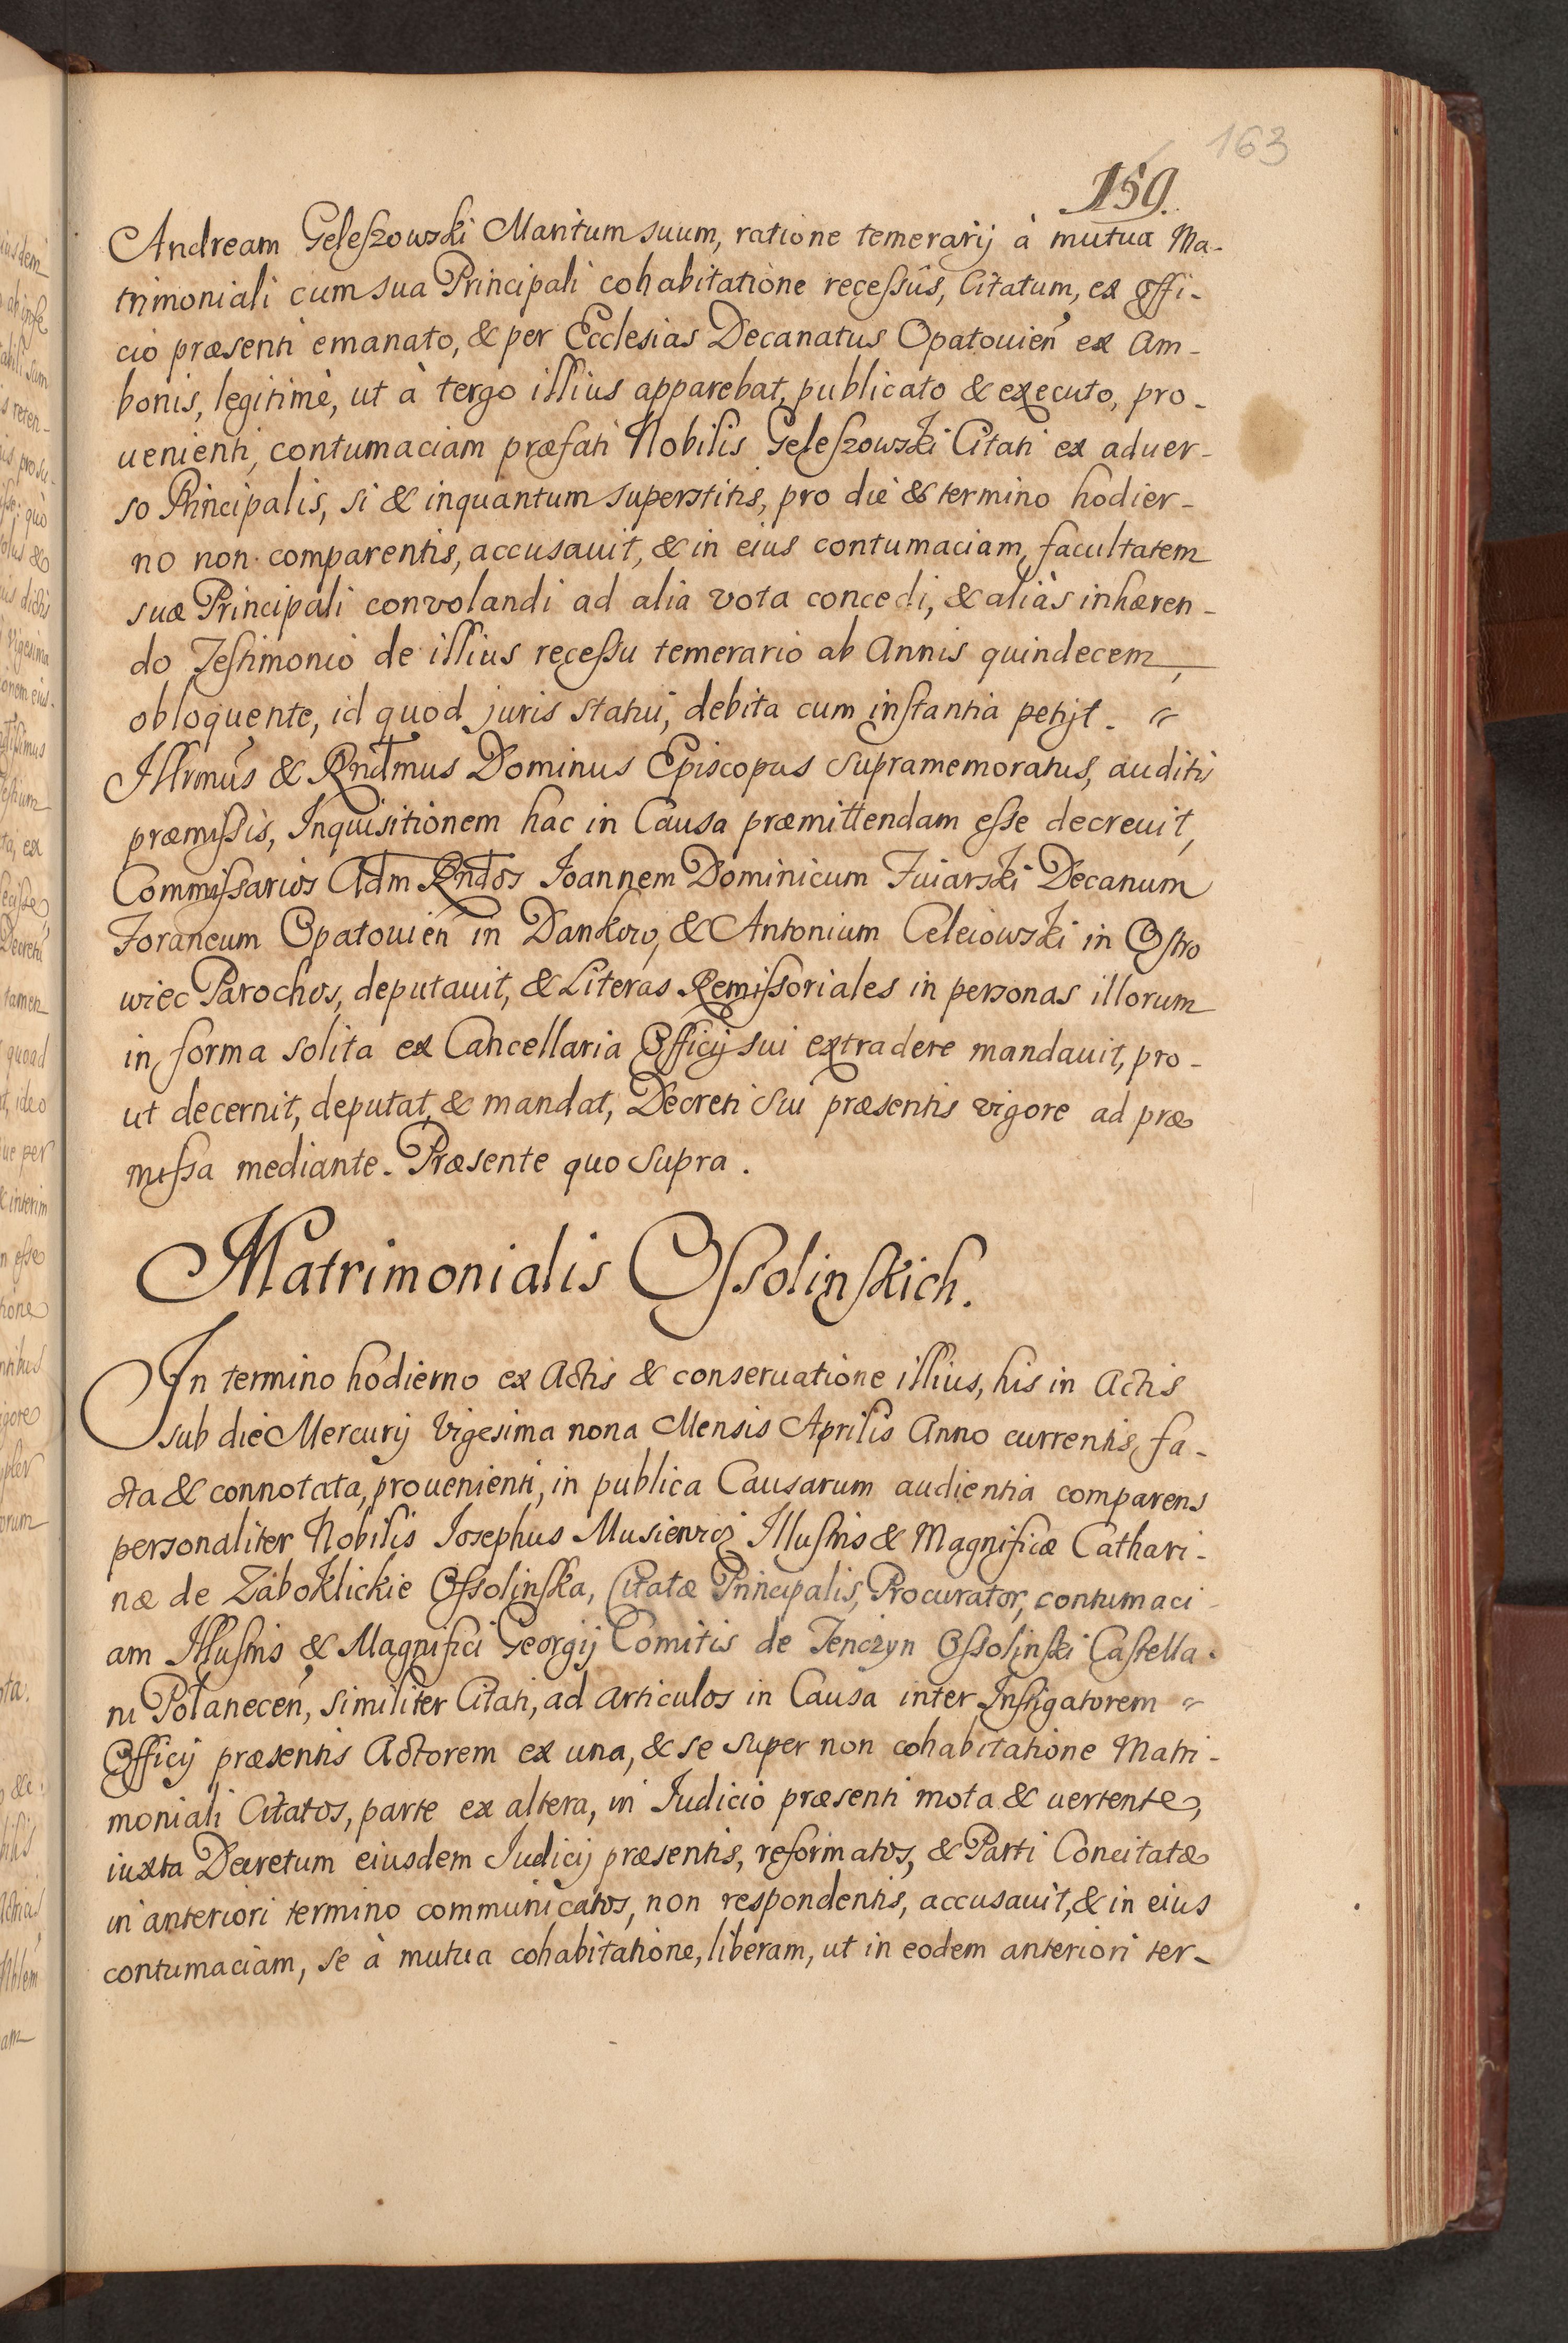 163
159.
Andream Geleſzowski Maritum suum, ratione temerarij à mutua Ma-
trimoniali cum sua Principali cohabitatione receſsûs, Citatum, ex Offi-
cio præsenti emanato, & per Ecclesias Decanatus Opatouień ex Am-
bonis, legitimè, ut à tergo illius apparebat, publicato & executo, pro-
uenienti, contumaciam præfati Nobilis Geleſzowski Citati ex aduer-
so Principalis, si & inquantum superstitis, pro die & termino hodier-
no non comparentis, accusauit, & in eius contumaciam, facultatem
suæ Principali convolandi ad alia vota concedi, & aliàs inhæren-
do Teſtimonio de illius receſsu temerario ab Annis quindecem,
obloquente, id quod juris statui, debita cum inſtantia petijt.
Illrmus & Rndmus Dominus Episcopus supramemoratus, auditis
præmiſsis, Inquisitionem hac in Causa præmittendam eſse decreuit,
Commiſsarios Adm Rndos Ioannem Dominicum Fuiarski Decanum
Foraneum Opatouień in Dankow, & Antonium Celeiowski in Oſtro
wiec Parochos, deputauit, & Literas Remiſsoriales in personas illorum
in forma solita ex Cancellaria Officij sui extradere mandauit, pro-
ut decernit, deputat, & mandat, Decreti sui præsentis vigore ad præ
miſsa mediante. Præsente quo supra.
Matrimonialis Oſsolinſkich.
In termino hodierno ex Actis & conseruatione illius, his in Actis
sub die Mercurij Vigesima nona Mensis Aprilis Anno currentis, fa-
cta & connotata, prouenienti, in publica Causarum audientia comparens
personaliter Nobilis Iosephus Musiewicz Illuſtris & Magnificæ Cathari-
næ de Zaboklickie Oſsolinſka, Citatæ Principalis, Procurator, contumaci-
am Illuſtris & Magnifici Georgij Comitis de Tenczyn Oſsolinſki Caſtella-
ni Połanecen, similiter Citati, ad Articulos in Causa inter Inſtigatorem
Officij præsentis Actorem ex una, & se super non cohabitatione Matri-
moniali Citatos, parte ex altera, in Iudicio præsenti mota & uertente,
iuxta Decretum eiusdem Iudicij præsentis, reformatos, & Parti Concitatæ
in anteriori termino communicatos, non respondentis, accusauit, & in eius
contumaciam, se à mutua cohabitatione, liberam, ut in eodem anteriori ter-